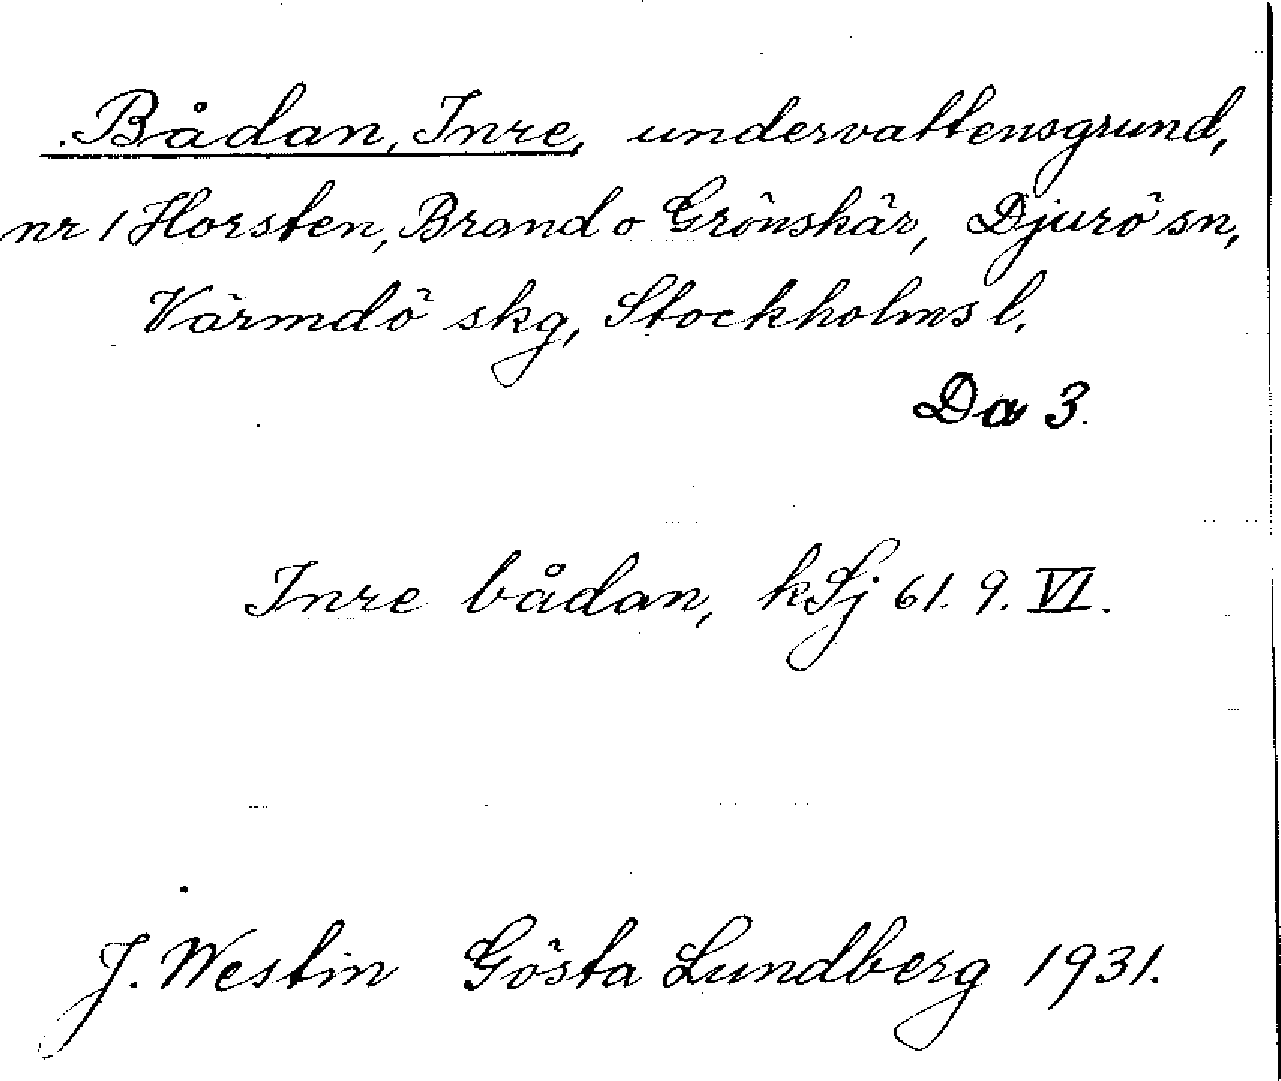 Bådan, Inre, undervattensgrund,
nr 1 Horsten, Brand o Grönskär, Djurö sn,
Värmdö skg, Stockholms l.
Da 3.
Inre bådan, kSj 61. 9. VI.
J. Westin Gösta Lundberg 1931.